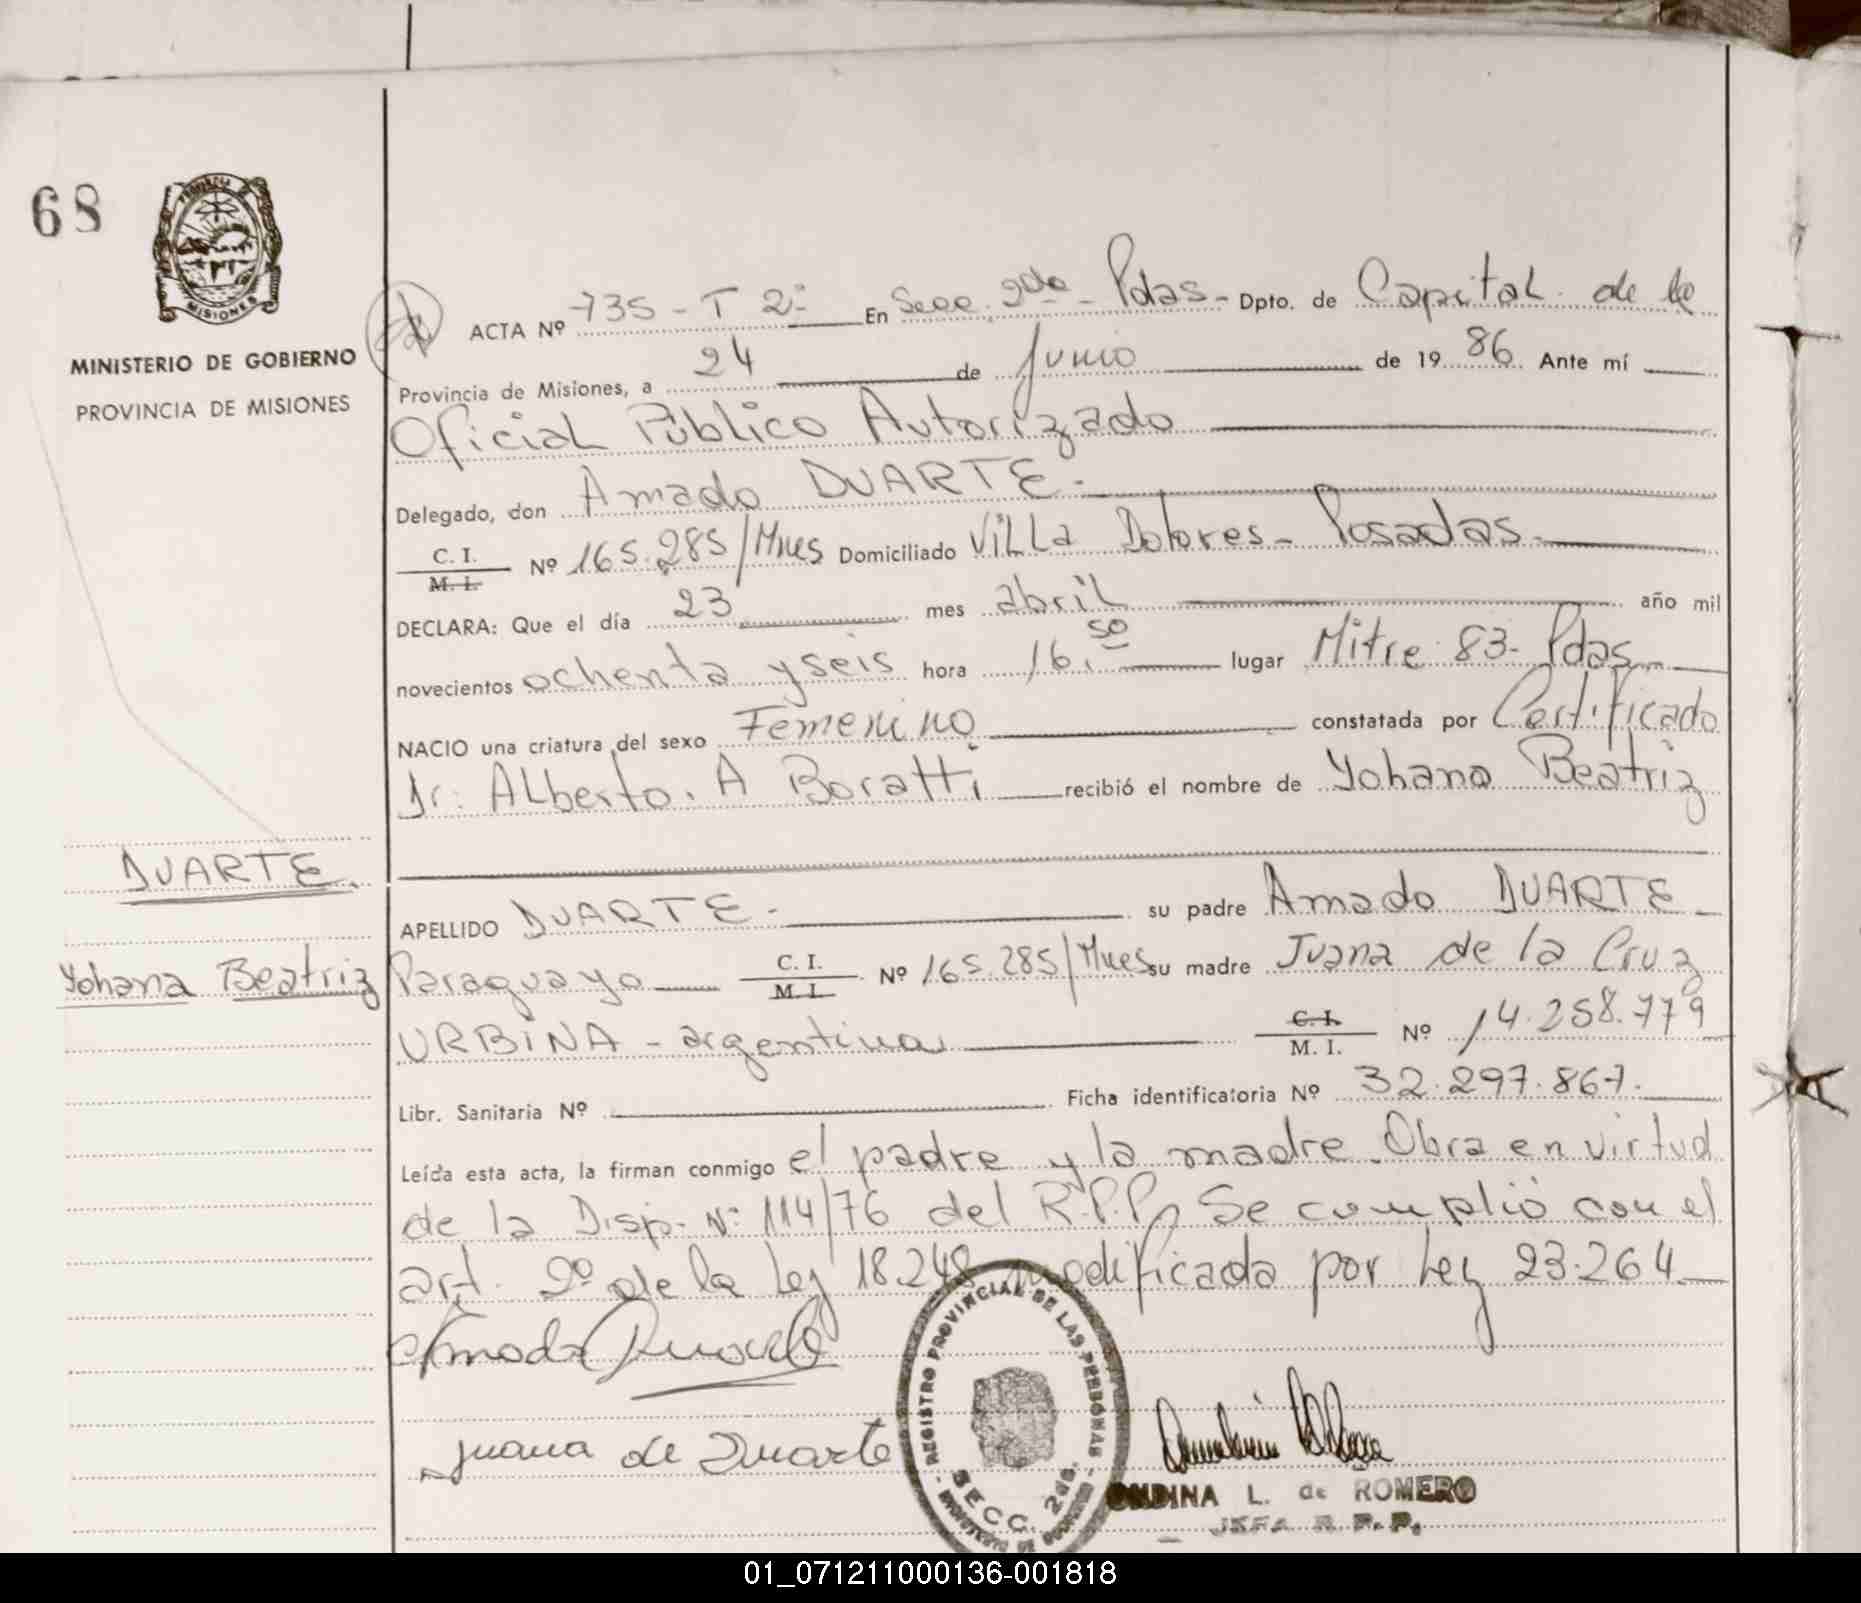 68
PROVINCIA DE
MISIONES
MINISTERIO DE GOBIERNO
PROVINCIA DE MISIONES
ACTA Nº 735 - T 2º En Secc. 2da - Pdas - Dpto. de Capital de la
Provincia de Misiones, a 24 de Junio de 1986. Ante mí
Oficial Público Autorizado
Delegado, don Amado DUARTE.
C. I.
M. I. Nº 165.285/Mnes Domiciliado Villa Dolores - Posadas.
DECLARA: Que el día 23 mes abril año mil
novecientos ochenta y seis hora 16.50 lugar Mitre 83 - Pdas
NACIO una criatura del sexo Femenino constatada por Certificado
Dr: Alberto. A Boratti recibió el nombre de Yohana Beatriz
DUARTE.
APELLIDO DUARTE. su padre Amado DUARTE
Yohana Beatriz
Paraguayo C. I.
M. I. Nº 165.285/Mnes su madre Juana de la Cruz
URBINA - argentina C. I.
M. I. Nº 14.258.779
Libr. Sanitaria Nº Ficha identificatoria Nº 32.297.867.
Leída esta acta, la firman conmigo el padre y la madre. Obra en virtud
de la Disp. Nº 114/76 del R.P.P. Se cumplió con el
art. 2º de la Ley 18.248 modificada por Ley 23.264
Amado Duarte
Juana de Duarte
REGISTRO PROVINCIAL DE LAS PERSONAS
SECC. 2da.
ONDINA L. de ROMERO
JEFA R. P. P.
01_071211000136-001818